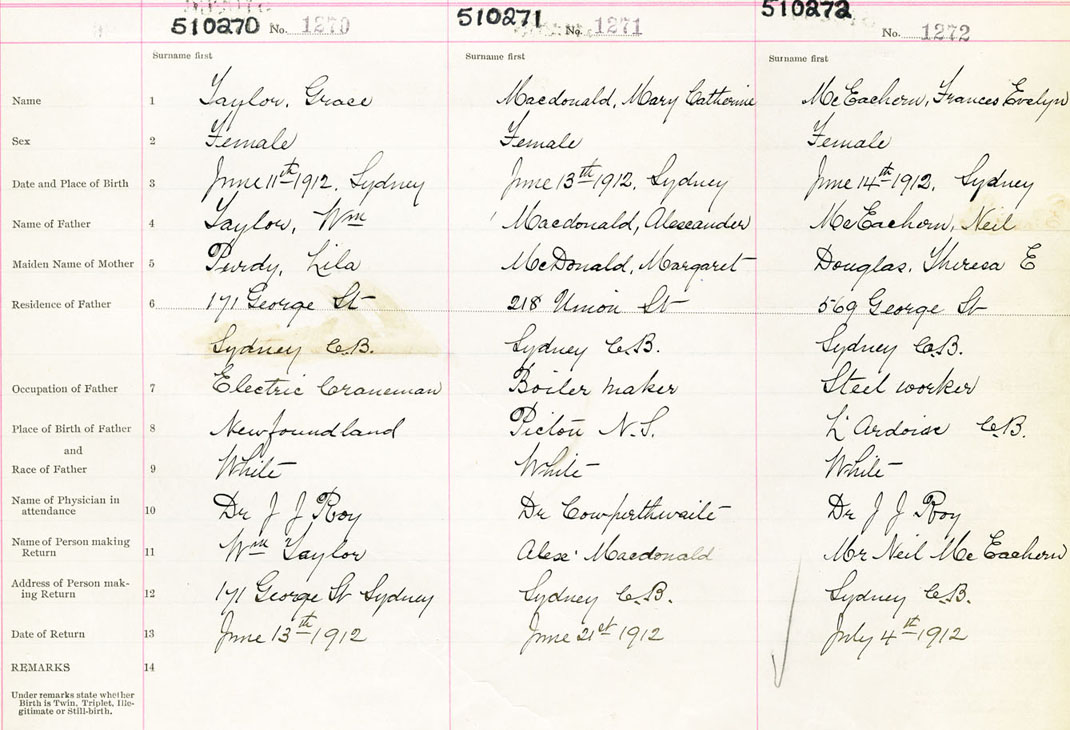 510270 No. 1270 510271 No. 1271 510272 No. 1272
Surname first Surname first Surname first
Name 1 Taylor, Grace Macdonald, Mary Catherine McEachern, Frances Evelyn
Sex 2 Female Female Female
Date and Place of Birth 3 June 11th 1912, Sydney June 13th 1912, Sydney June 14th 1912, Sydney
Name of Father 4 Taylor, Wm Macdonald, Alexander McEachern, Neil
Maiden Name of Mother 5 Purdy, Lila McDonald, Margaret Douglas, Theresa E
Residence of Father 6 171 George St 218 Union St 569 George St
Sydney C.B. Sydney C.B. Sydney C.B.
Occupation of Father 7 Electric Craneman Boiler maker Steel worker
Place of Birth of Father 8 Newfoundland Pictou N.S. L'Ardoise C.B.
and
Race of Father 9 White White White
Name of Physician in
attendance 10 Dr J J Roy Dr Cowperthwaite Dr J J Roy
Name of Person making
Return 11 Wm Taylor Alex. Macdonald Mr Neil McEachern
Address of Person mak-
ing Return 12 171 George St Sydney Sydney C.B. Sydney C.B.
Date of Return 13 June 13th 1912 June 21st 1912 July 4th 1912
REMARKS 14
Under remarks state whether
Birth is Twin, Triplet, Ille-
gitimate or Still-birth.